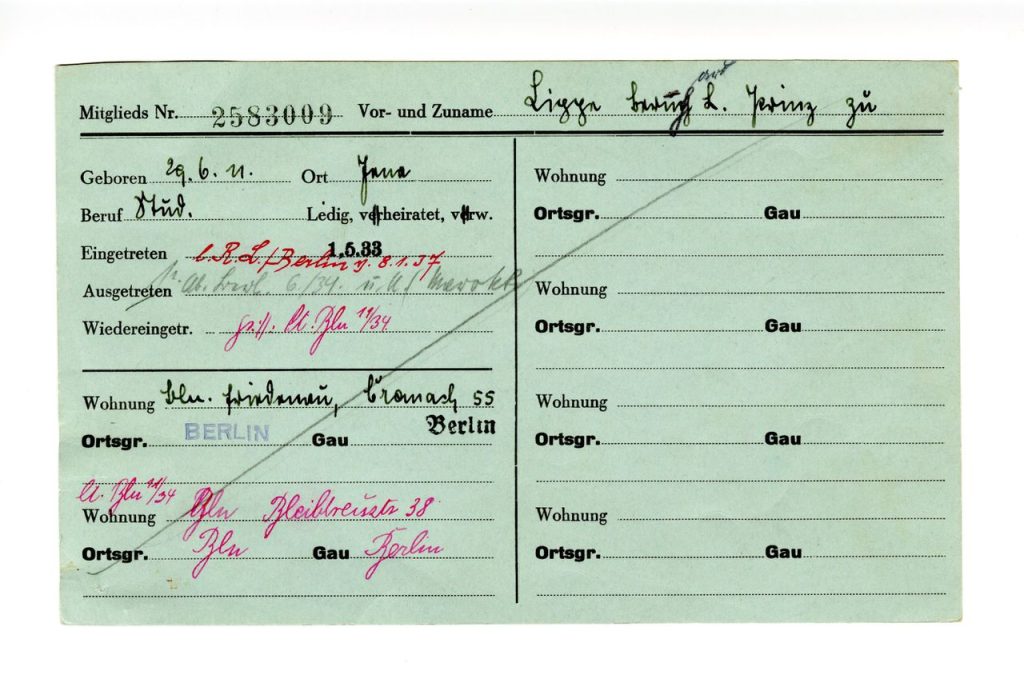 Mitglieds Nr. 2583009 Vor- und Zuname Lippe Bernh L. Prinz zu
ard
Geboren 29.6.11. Ort Jena
Beruf Stud. Ledig, verheiratet, verw.
Eingetreten 1.5.33
b.R.L/Berlin v. 8.1.37
Ausgetreten 6/34. u.
Wiedereingetr. Lt. Bln 11/34
Wohnung Bln. Friedenau, Cranach 55
Ortsgr. BERLIN Gau Berlin
Lt. Bln 11/34
Wohnung Bln Bleibtreustr 38
Ortsgr. Bln Gau Berlin
Wohnung
Ortsgr. Gau
Wohnung
Ortsgr. Gau
Wohnung
Ortsgr. Gau
Wohnung
Ortsgr. Gau